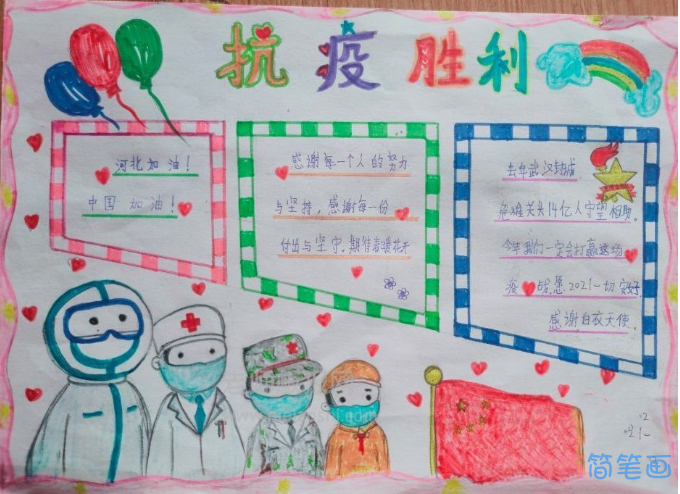 抗疫胜利
河北加油！
中国加油！
感谢每一个人的努力
与坚持，感谢每一份
付出与坚守。期待春暖花开
去年武汉封城
危难关头14亿人守望相助。
今年我们一定会打赢这场
疫 战，愿2021一切安好，
感谢白衣天使。
简笔画